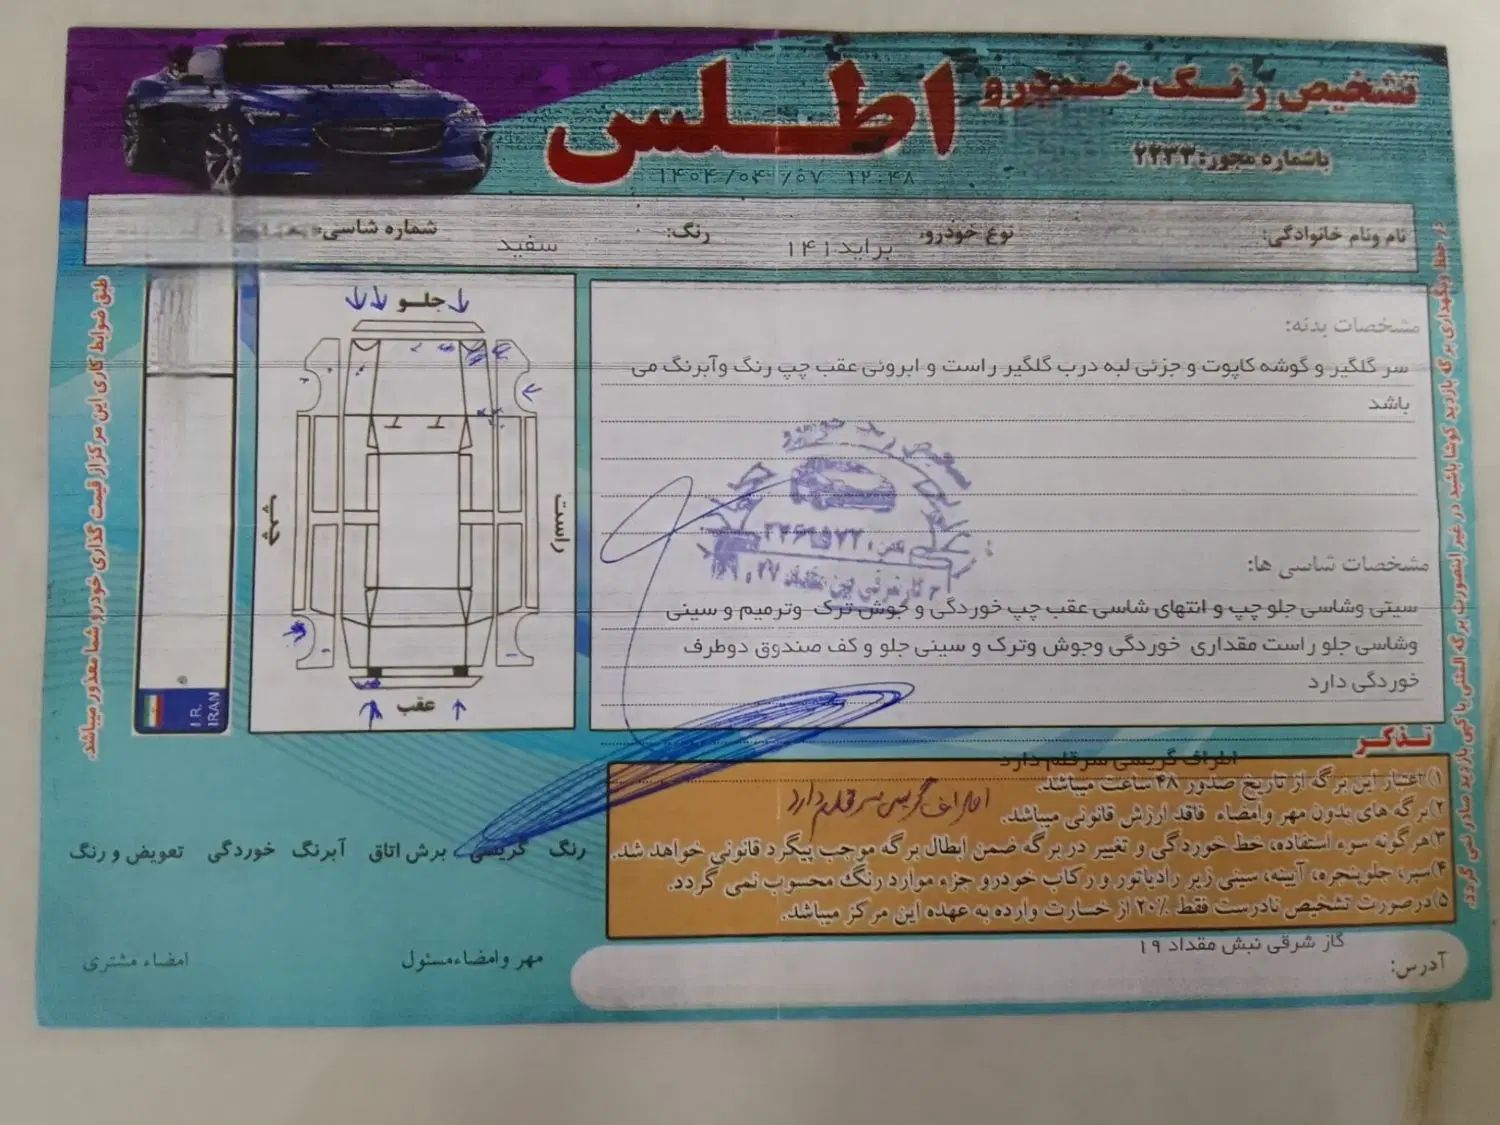 تشخیص رنگ خودرو
اطلس
باشماره مجوز: ۲۲۳۳
۱۴۰۴/۰۴/۰۷ ۱۲:۴۸
نام ونام خانوادگی:
نوع خودرو:
براید ۱۴۱
رنگ:
سفید
شماره شاسی:
مشخصات بدنه:
سر گلگیر و گوشه کاپوت و جزئی لبه درب گلگیر راست و ابروئی عقب چپ رنگ وآبرنگ می
باشد
مشخصات شاسی ها:
سیتی وشاسی جلو چپ و انتهای شاسی عقب چپ خوردگی و جوش ترک وترمیم و سینی
وشاسی جلو راست مقداری خوردگی وجوش وترک و سینی جلو و کف صندوق دوطرف
خوردگی دارد
جلو
راست
چپ
عقب
I.R.
IRAN
طبق ضوابط کاری این مرکز از قیمت گذاری خودرو شما معذور میباشد.
در حفظ ونگهداری برگه بازدید کوشا باشید در غیر اینصورت برگه المثنی یا کپی بازدید صادر نمی گردد.
تذکر
اطراف گریسی سرقلم دارد
۱)اعتبار این برگه از تاریخ صدور ۴۸ ساعت میباشد.
اطراف گریسی سرقلم دارد
۲)برگه های بدون مهر وامضاء فاقد ارزش قانونی میباشد.
۳)هرگونه سوء استفاده، خط خوردگی و تغییر در برگه ضمن ابطال برگه موجب پیگرد قانونی خواهد شد.
۴)سپر، جلوپنجره، آیینه، سینی زیر رادیاتور و رکاب خودرو جزء موارد رنگ محسوب نمی گردد.
۵)درصورت تشخیص نادرست فقط ۲۰٪ از خسارت وارده به عهده این مرکز میباشد.
رنگ گریسی برش اتاق آبرنگ خوردگی تعویض و رنگ
مهر وامضاءمسئول
امضاء مشتری
آدرس:
گاز شرقی نبش مقداد ۱۹